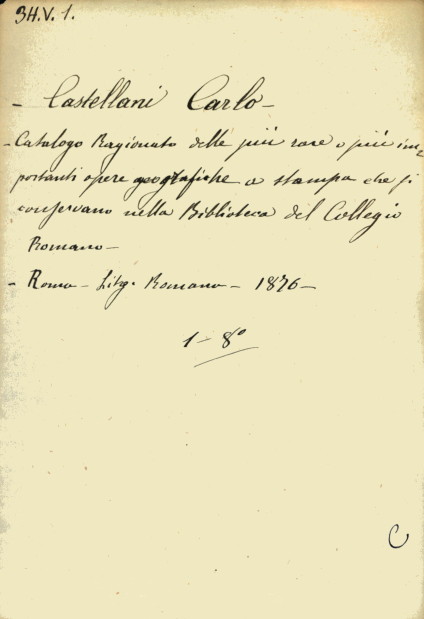 3H.V.1.
- Castellani Carlo -
- Catalogo Ragionato delle più rare o più im=
portanti opere geografiche a stampa che si
conservano nella Biblioteca del Collegio
Romano -
- Roma - Romano - 1876 -
1 - 8°
C